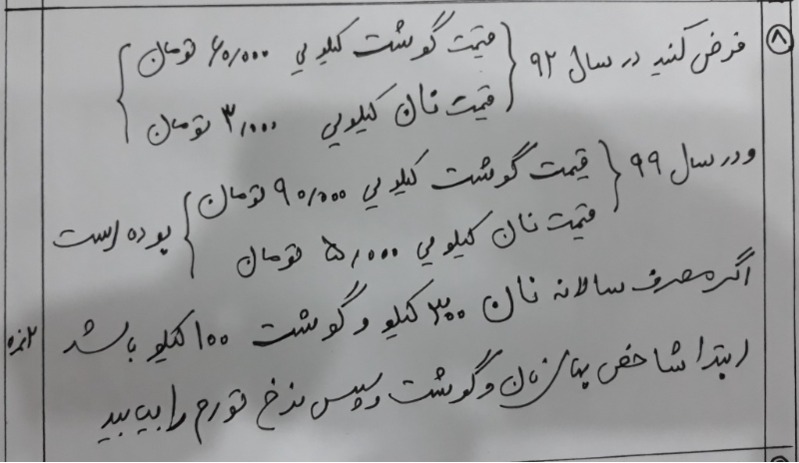 ۸ فرض کنید در سال ۹۲ { قیمت گوشت کیلویی ۶۰/۰۰۰ تومان
قیمت نان کیلویی ۳/۰۰۰ تومان }
و در سال ۹۹ { قیمت گوشت کیلویی ۹۰/۰۰۰ تومان
قیمت نان کیلویی ۵/۰۰۰ تومان } بوده است
اگر مصرف سالانه نان ۳۰۰ کیلو و گوشت ۱۰۰ کیلو باشد
ابتدا شاخص بهای نان و گوشت و سپس نرخ تورم را بیابید